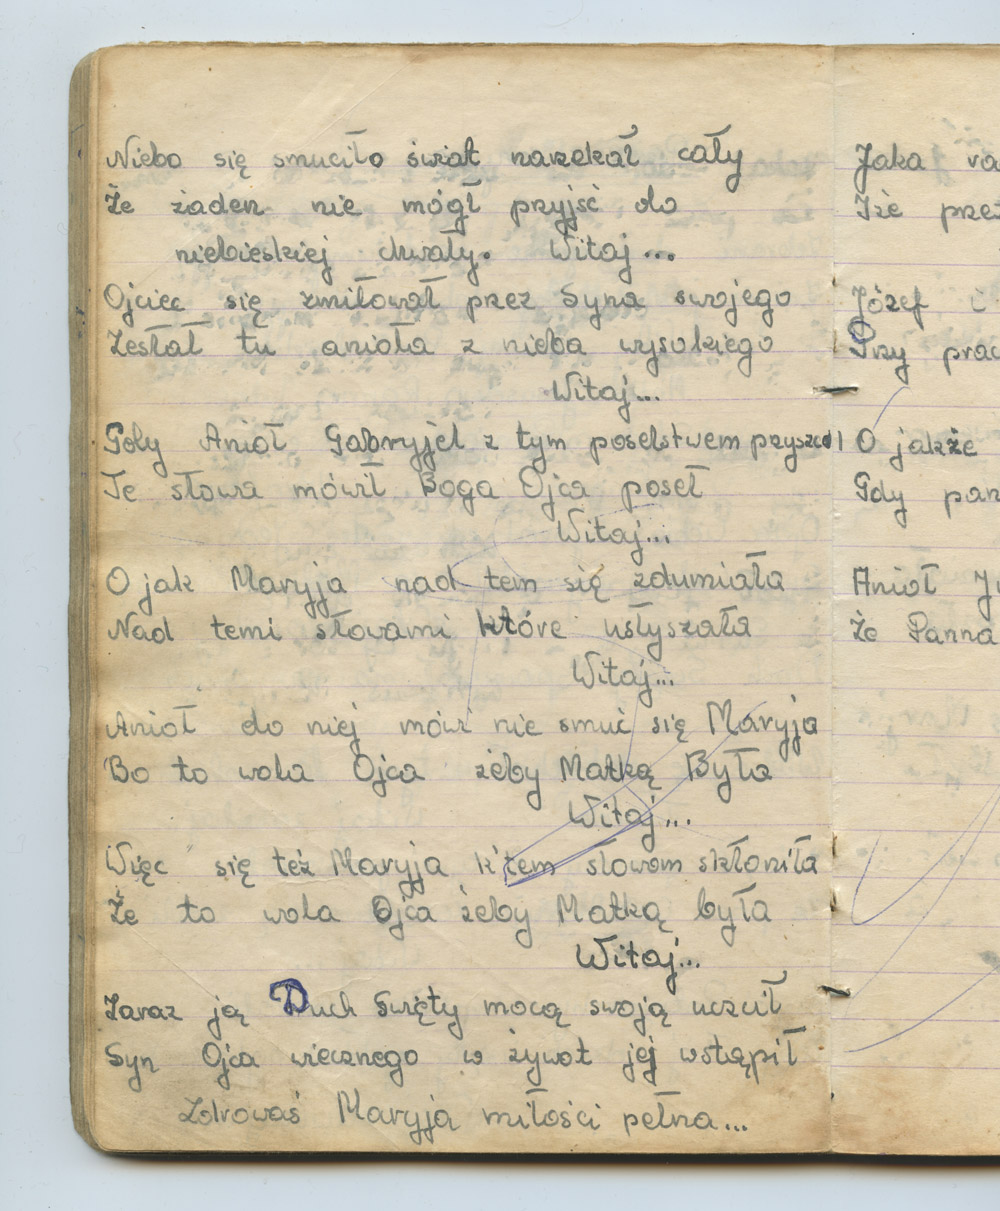 Niebo się smuciło świat narzekał cały
Że żaden nie mógł przyjść do
niebieskiej chwały. Witaj...
Ojciec się zmiłował przez Syna swojego
Zesłał tu anioła z nieba wysokiego
Witaj...
Gdy Anioł Gabryjel z tym poselstwem przyszedł
Te słowa mówił Boga Ojca poseł
Witaj...
O jak Maryja nad tem się zdumiała
Nad temi słowami które usłyszała
Witaj...
Anioł do niej mówi nie smuć się Maryja
Bo to wola Ojca żeby Matką Była
Witaj...
Więc się też Maryja k'tem słowom skłoniła
Że to wola Ojca żeby Matką była
Witaj...
Zaraz ją Duch Święty mocą swoją uczcił
Syn Ojca wiecznego w żywot jej wstąpił
Zdrowaś Maryja miłości pełna...
Jaka
Iże
Józef i
Przy
O jakże
Gdy
Anioł
Że Panna